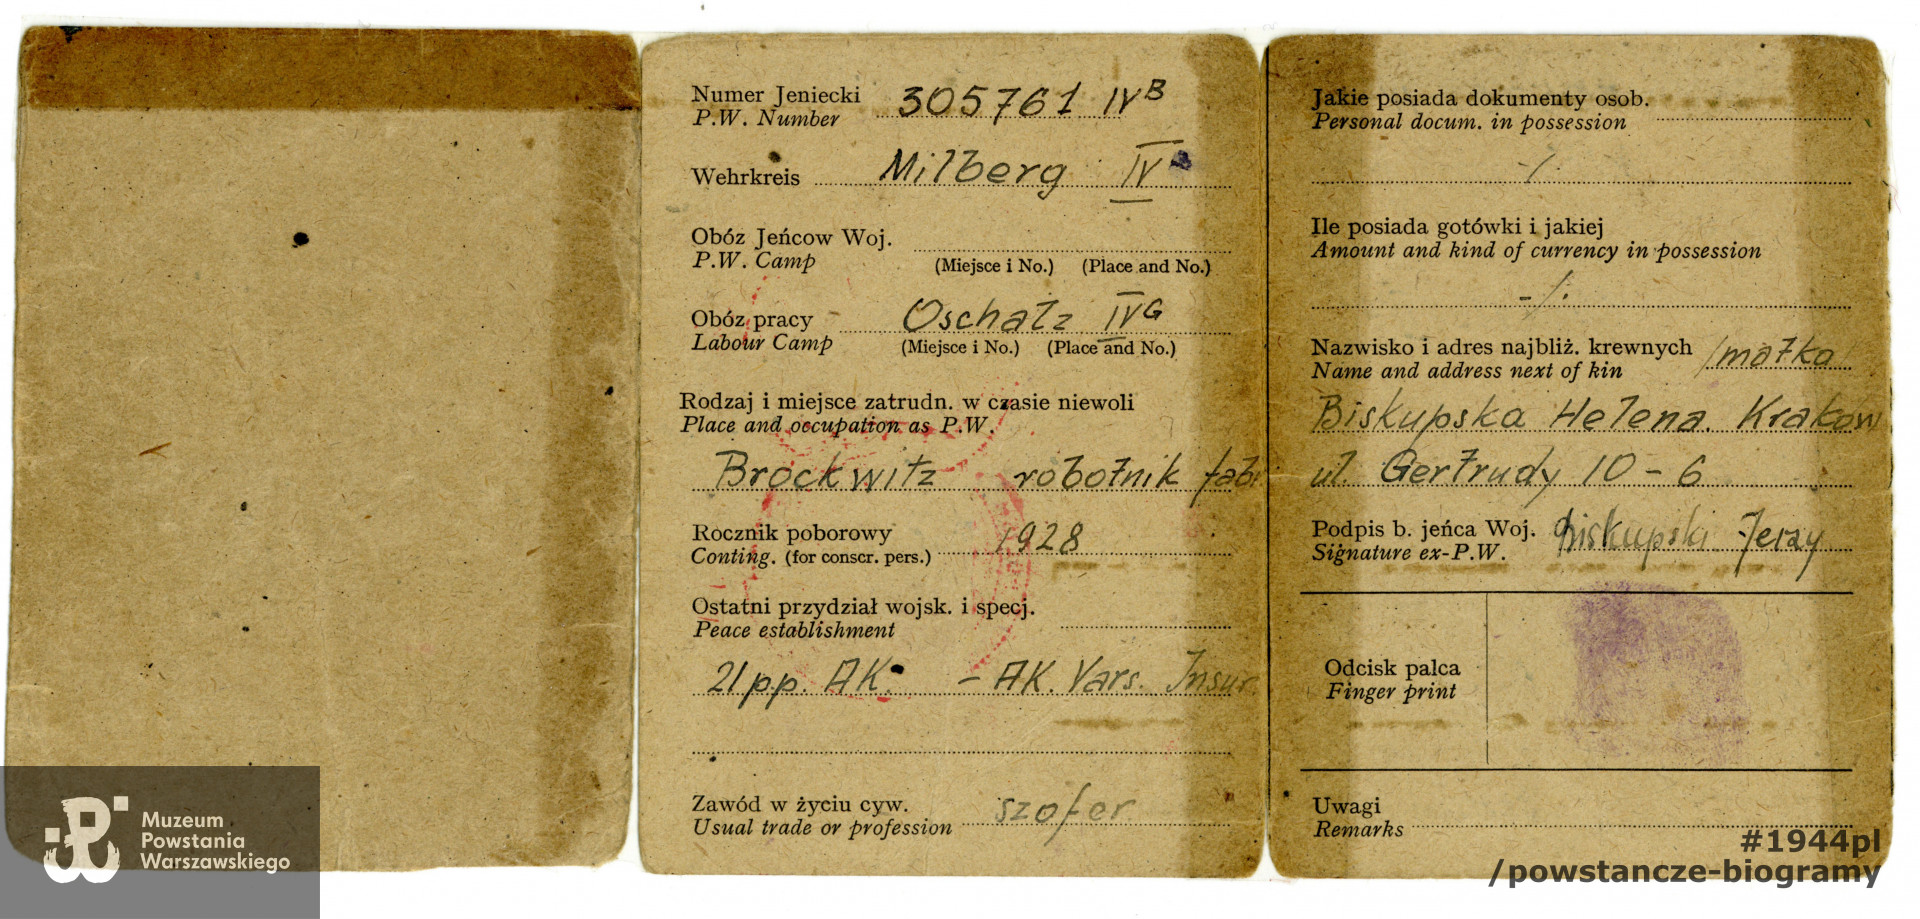 Numer Jeniecki 305761 IVB
P.W. Number
Wehrkreis Milberg IV
Obóz Jeńcow Woj.
P.W. Camp (Miejsce i No.) (Place and No.)
Obóz pracy Oschatz IVG
Labour Camp (Miejsce i No.) (Place and No.)
Rodzaj i miejsce zatrudn. w czasie niewoli
Place and occupation as P.W.
Brockwitz robotnik fabr
Rocznik poborowy 1928
Conting. (for conscr. pers.)
Ostatni przydział wojsk. i specj.
Peace establishment
21 p.p. AK. – AK. Vars. Insur
Zawód w życiu cyw. szofer
Usual trade or profession
Jakie posiada dokumenty osob.
Personal docum. in possession
-/.
Ile posiada gotówki i jakiej
Amount and kind of currency in possession
-/.
Nazwisko i adres najbliż. krewnych /matka
Name and address next of kin
Biskupska Helena. Kraków
ul. Gertrudy 10 - 6
Podpis b. jeńca Woj. Biskupski Jerzy
Signature ex-P.W.
Odcisk palca
Finger print
Uwagi
Remarks
Muzeum
Powstania
Warszawskiego
#1944pl
/powstancze-biogramy